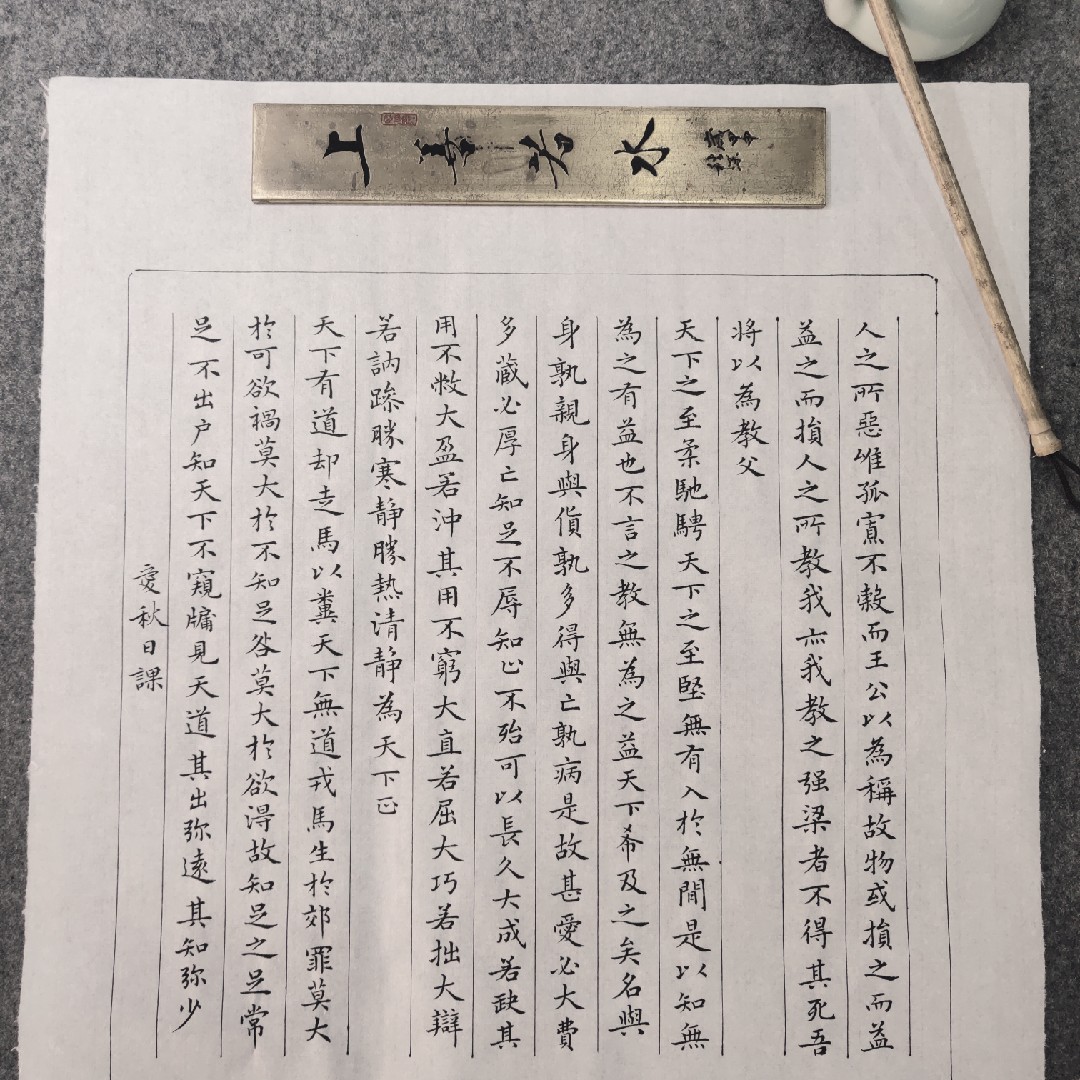 上善若水
人之所惡唯孤寡不穀而王公以為稱故物或損之而益
益之而損人之所教我亦我教之强梁者不得其死吾
將以為教父
天下之至柔馳騁天下之至堅無有入於無間是以知無
為之有益也不言之教無為之益天下希及之矣名與
身孰親身與貨孰多得與亡孰病是故甚愛必大費
多藏必厚亡知足不辱知止不殆可以長久大成若缺其
用不敝大盈若沖其用不窮大直若屈大巧若拙大辯
若訥躁勝寒靜勝熱清靜為天下正
天下有道却走馬以糞天下無道戎馬生於郊罪莫大
於可欲禍莫大於不知足咎莫大於欲得故知足之足常
足不出户知天下不窺牖見天道其出弥遠其知弥少
愛秋日課